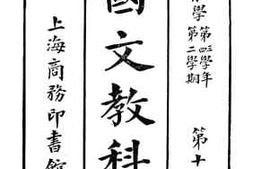 學
第四學年
第二學期
第十
國文教科
上海商務印書館